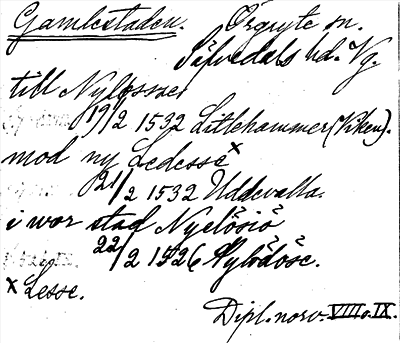 Gamlestaden. Örgryte sn.
Säfvedals hd. Vg.
till Nylossze
19/2 1532 Litlehammer (Viken).
mod ny Ledesse x
21/2 1532 Uddevalla.
i wor stad Nyelösiö
22/2 1526 Nylödöse.
x Lesse.
Dipl. norv. VIII o. IX.